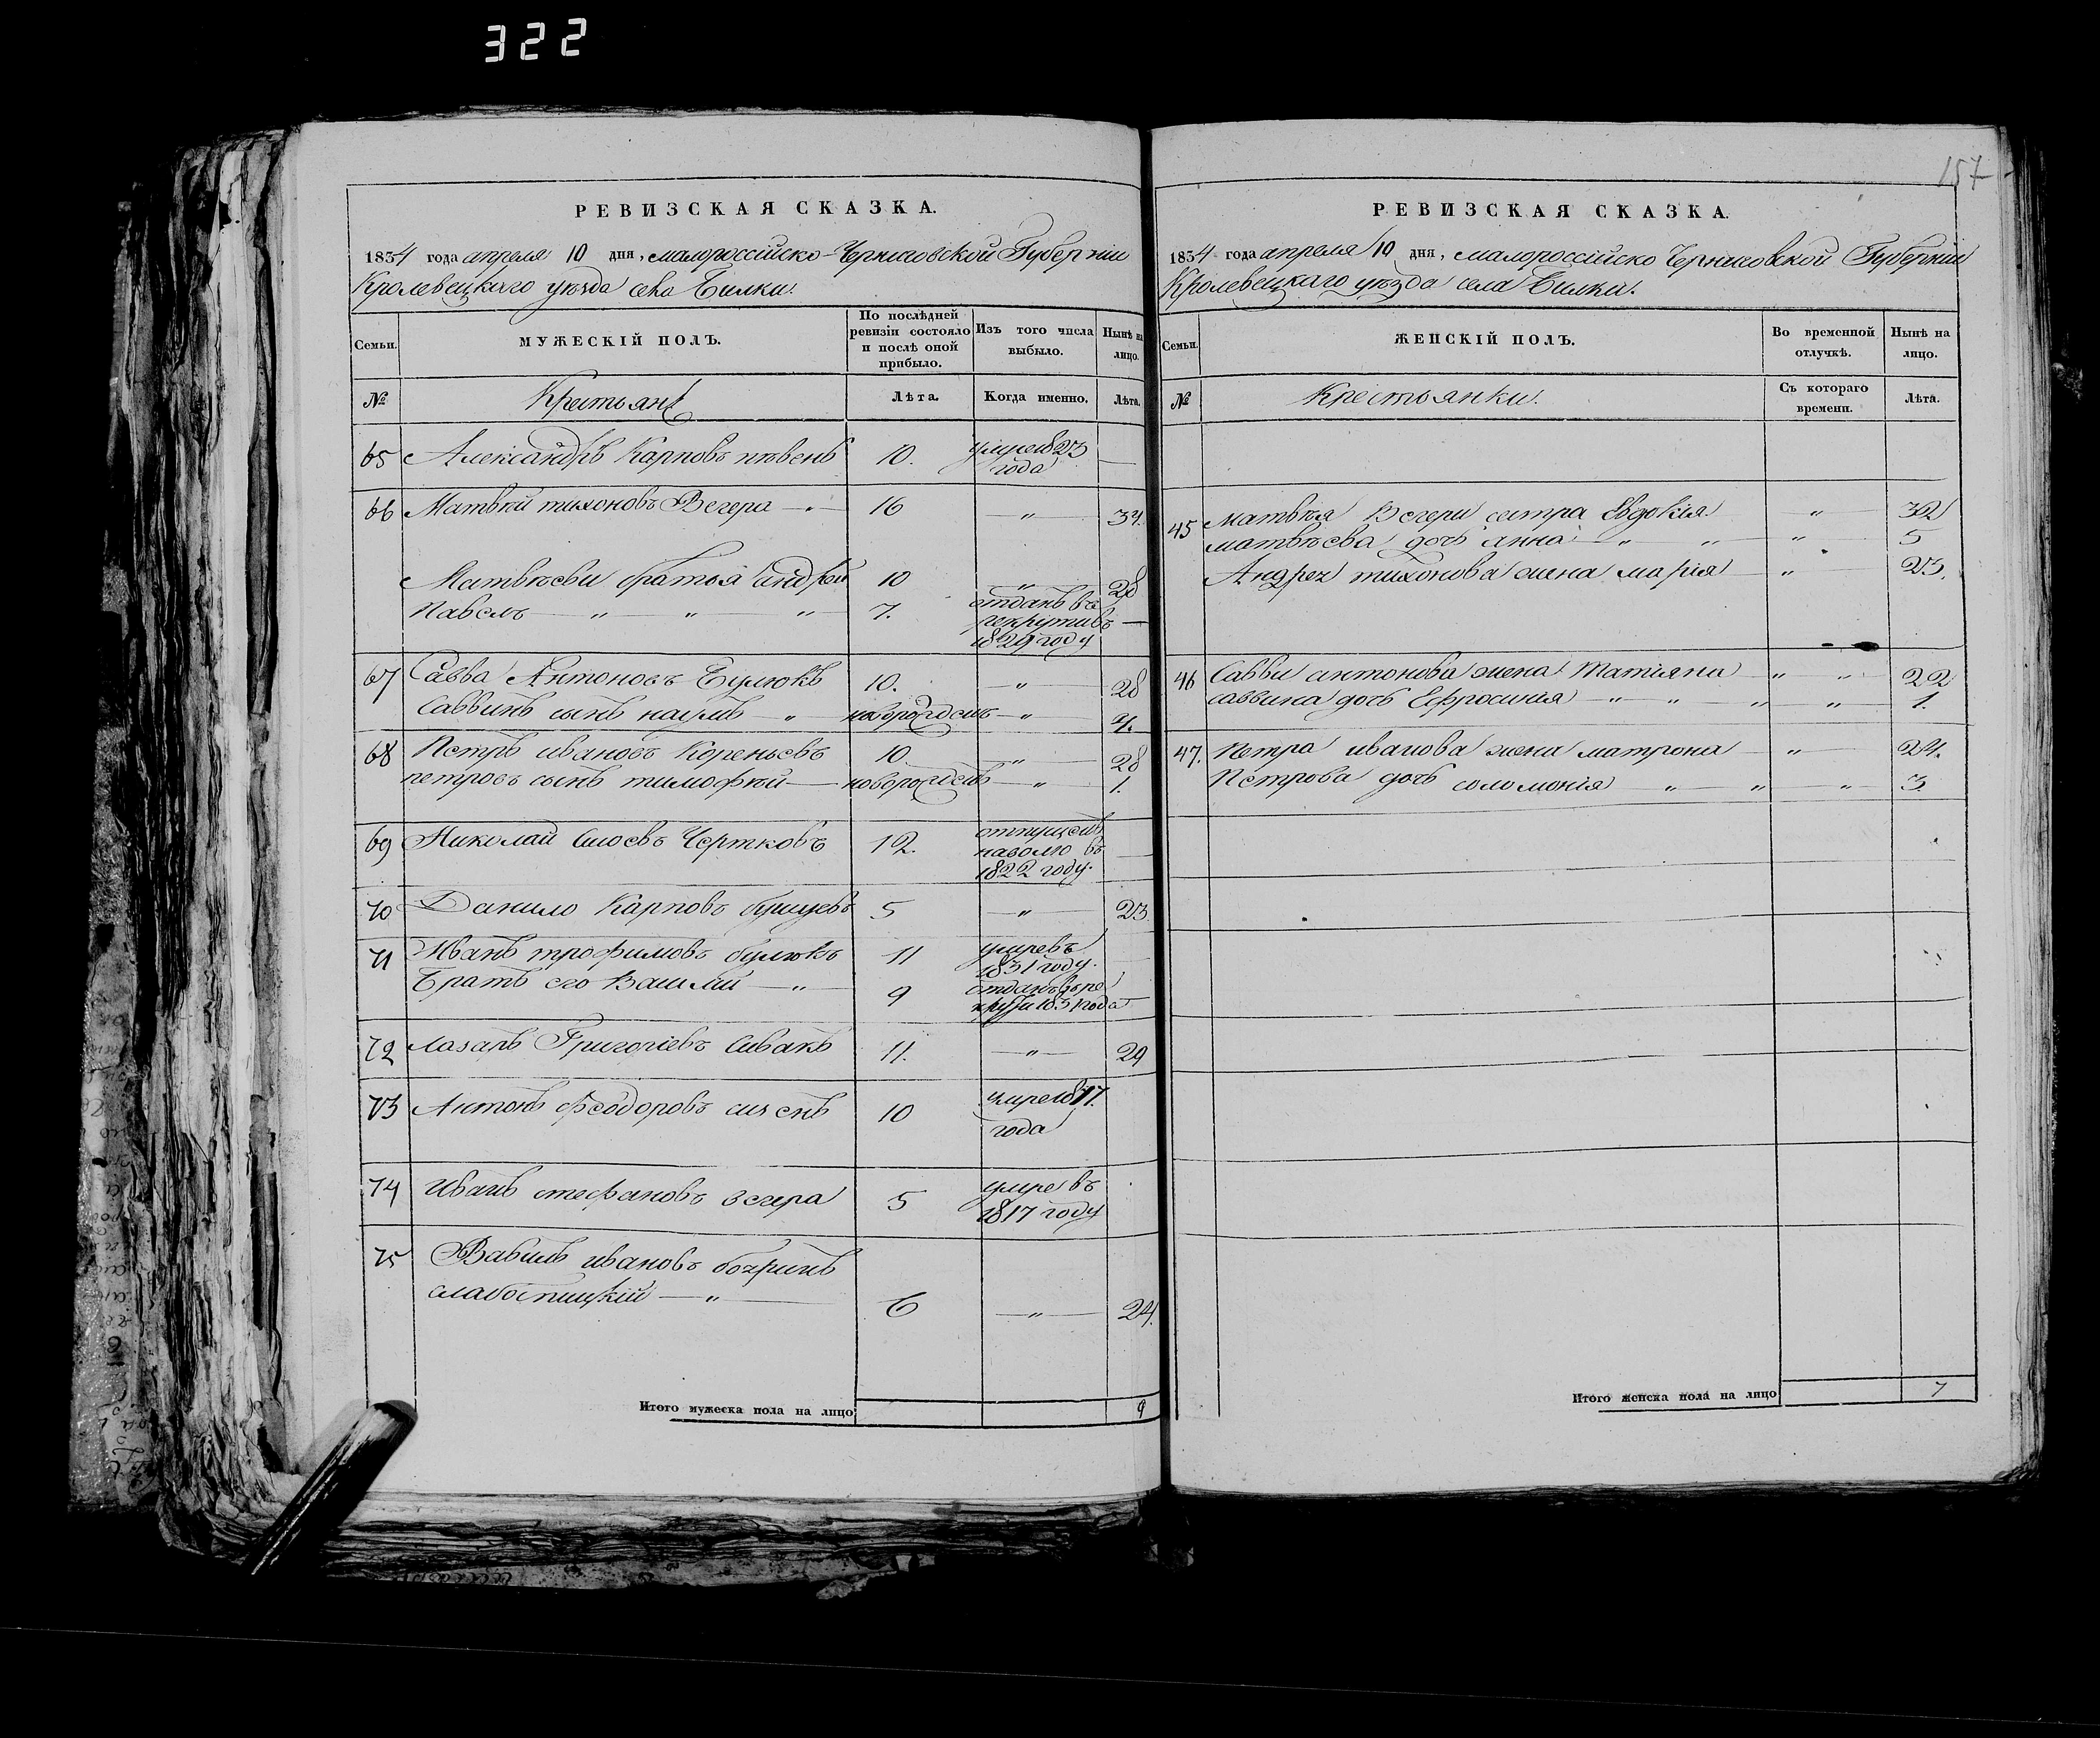 322
157
РЕВИЗСКАЯ СКАЗКА.
1834 года апреля 10 дня, малороссійско-Черниговской Губерніи
Кролевецкаго уезда села Билки.
Семьи. МУЖЕСКІЙ ПОЛЪ. По послѣдней ревизіи состояло и послѣ оной прибыло. Изъ того числа выбыло. Нынѣ на лицо.
№ Крестьянѣ Лѣта. Когда именно. Лѣта.
65 Александръ Карповъ певень 10. умре 1823 года —
66 Матвѣй тихоновъ Вегера — 16 — „ — 34.
Матвѣеви братья андрѣй 10 „ 28
Павелъ — „ „ „ 7. отданъ въ рекруты въ 1829 году —
67 Савва Антоновъ Булюкъ 10. — „ — 28
Саввинъ сынъ наумъ — „ — новорожденъ — „ — 4.
68 Петръ ивановъ Кореньевъ 10. — „ — 28
петровъ сынъ тимофѣй — новорожденъ — „ — 1.
69 Николай Чертковъ 12. отпущенъ на волю въ 1822 году. —
70 Данило Карповъ 5 — „ — 23
71 Иванъ трофимовъ булюкъ 11 умре въ 1831 году. —
Братъ его Василій — „ 9 отданъ въ рекруты 1831 года —
72 Лазарь Григоріевъ Сивакъ 11. — „ — 29
73 Антонъ Феодоровъ 10 умре 1817. года
74 Иванъ стефановъ вегера 5 умре въ 1817 году
75 Вавилъ ивановъ
слабостицкій — „ — 6 — „ — 24.
Итого мужеска пола на лицо 9
РЕВИЗСКАЯ СКАЗКА.
1834 года апреля 10 дня, малороссійско Черниговской Губерніи
Кролевецкаго уезда села Билки.
Семьи. ЖЕНСКІЙ ПОЛЪ. Во временной отлучкѣ. Нынѣ на лицо.
№ Крестьянки. Съ котораго времени. Лѣта.
45 матвѣя Вегери сестра Евдокія — „ — 32
матвѣева дочь анна — „ „ — „ — 5
Андрея тихонова жена марія — „ — 23.
46 Савви антонова жена Татіяна — „ „ 22
саввина дочь Ефросинія — „ „ „ „ — 1.
47. Петра иванова жена матрона — „ — 24.
Петрова дочь соломонія — „ „ „ — 3.
Итого женска пола на лицо 7